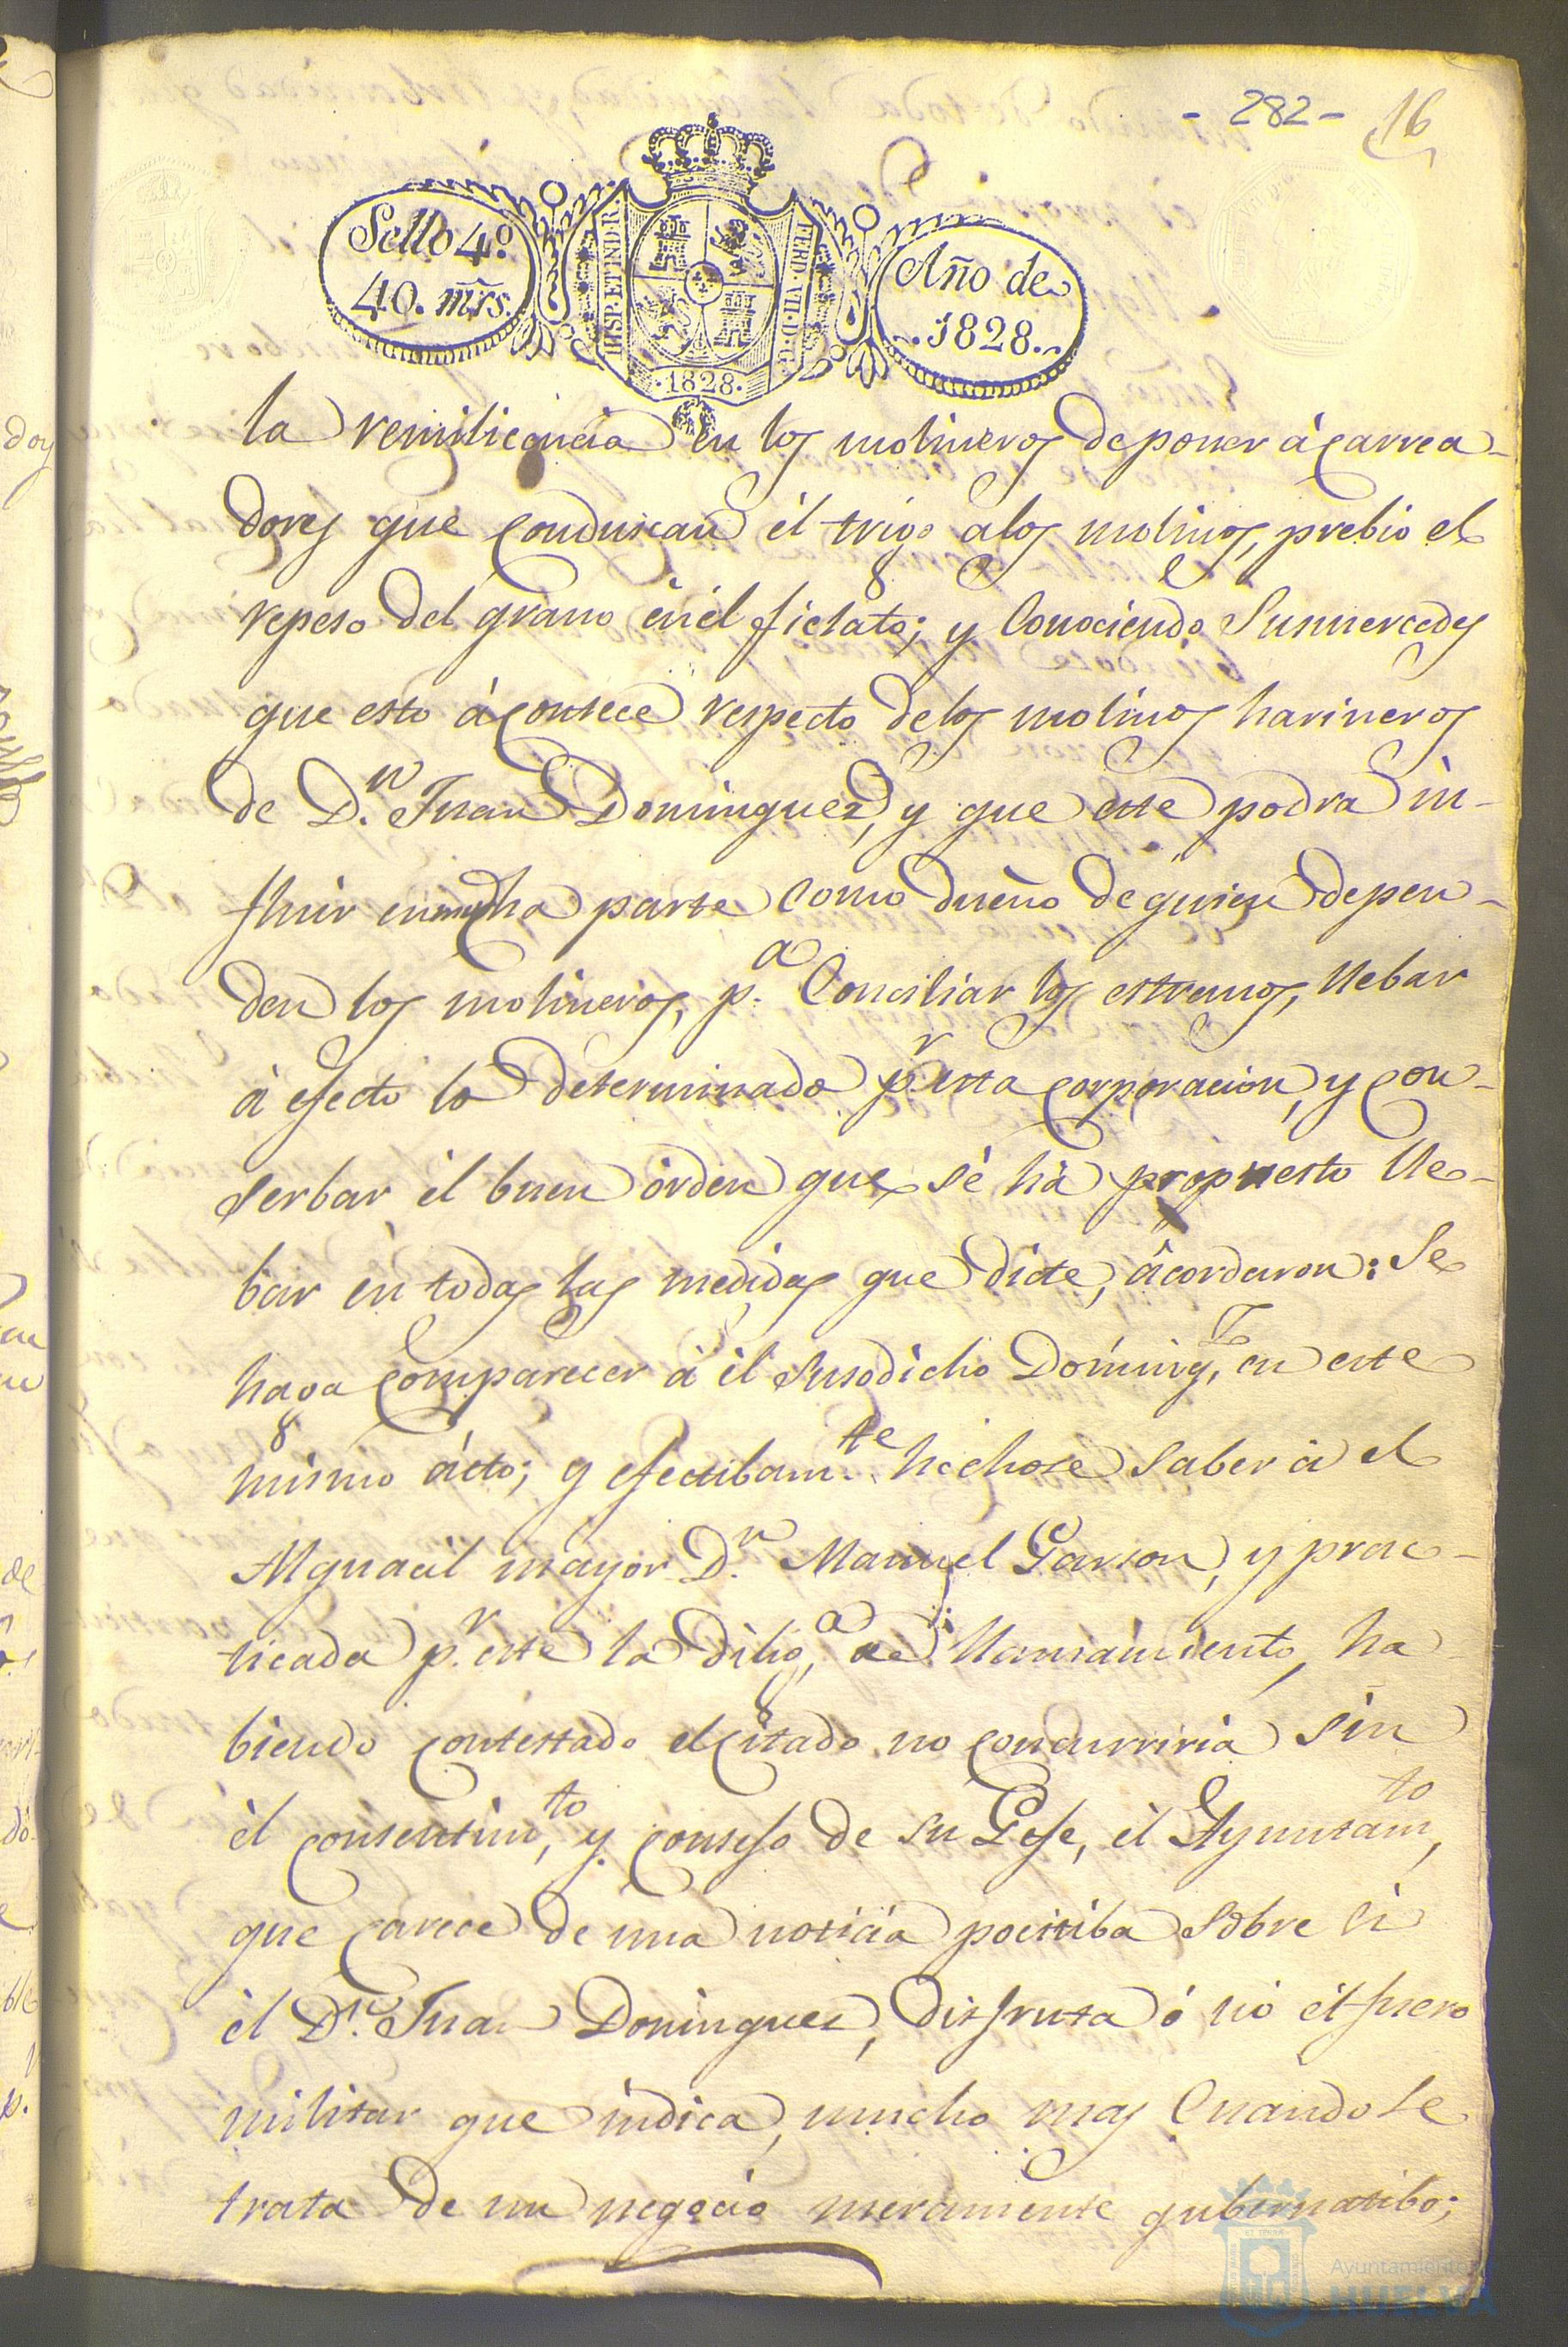 - 282 - 16
Sello 4º
40. mrs.
HISP. ET IND. R.
FERD. VII. D. G.
. 1828 .
Año de
. 1828 .
la renisticencia en los molineros de poner àcarrea-
dores que conduscan él trigo alos molinos, prebio el
repeso del grano én él fielato; y conociendo Sus mercedes
que esto ácontece respecto delos molinos harineros
de D.n Juan Dominguez, y que este podra in-
fluir enmucha parte como dueño de quien depen-
den los molineros, p.a Conciliar los estremos, llebar
á efecto lo determinado p.r esta corporacion, y con-
serbar él buen órden que sé há propuesto lle-
bar én todas las medidas que dicte, ácordaron: Se
haga comparecer á él susodicho Doming.z en este
mismo ácto; y efectibam.te hechose saber á el
Alguacil mayor D.n Manuel Garzon, y prac-
ticada p.r este la dilig.a de llamamiento, ha
biendo contestado el citado no concurriria sin
él consentim.to, y consejo de su Gefe, él Ayuntam.to,
que carece de una noticia pocitiba sobre si
él D.n Juan Dominguez, disfruta ó nó él fuero
militar que indica, mucho mas cuando se
trata de un negocio meramente gubernatibo;
Ayuntamiento
HUELVA